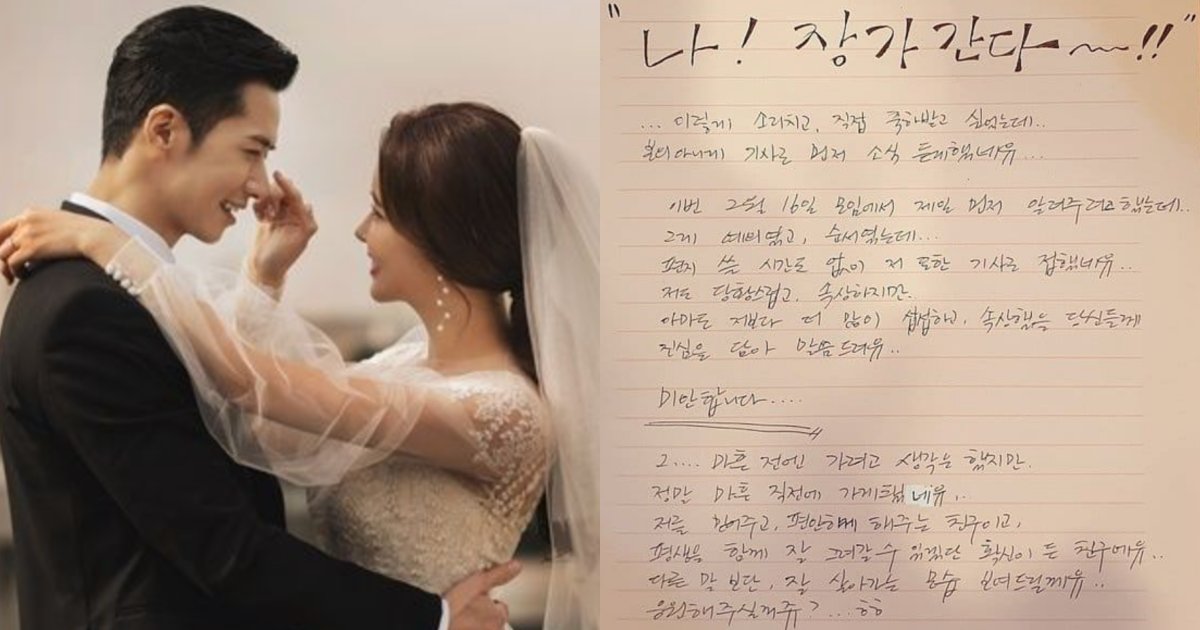 "나! 장가간다~!!"
... 이렇게 소리치고, 직접 축하받고 싶었는데..
본의아니게 기사로 먼저 소식 듣게했네유...
이번 2월 16일 모임에서 제일 먼저 알려주려고했는데..
그게 예의였고, 순서였는데...
편지 쓸 시간도 없이 저 또한 기사로 접했네유..
저도 당황스럽고, 속상하지만.
아마도 저보다 더 많이 섭섭하고, 속상했을 당신들께
진심을 담아 말씀드려유..
미안합니다....
그.... 마흔 전엔 가려고 생각은 했지만.
정말 마흔 직전에 가게됐네유..
저를 믿어주고, 편안하게 해주는 친구이고,
평생을 함께 잘 그려갈 수 있겠단 확신이 든 친구에유..
다른 말 보단, 잘 살아가는 모습 보여드릴께유..
응원해주실꺼쥬?...ㅎㅎ